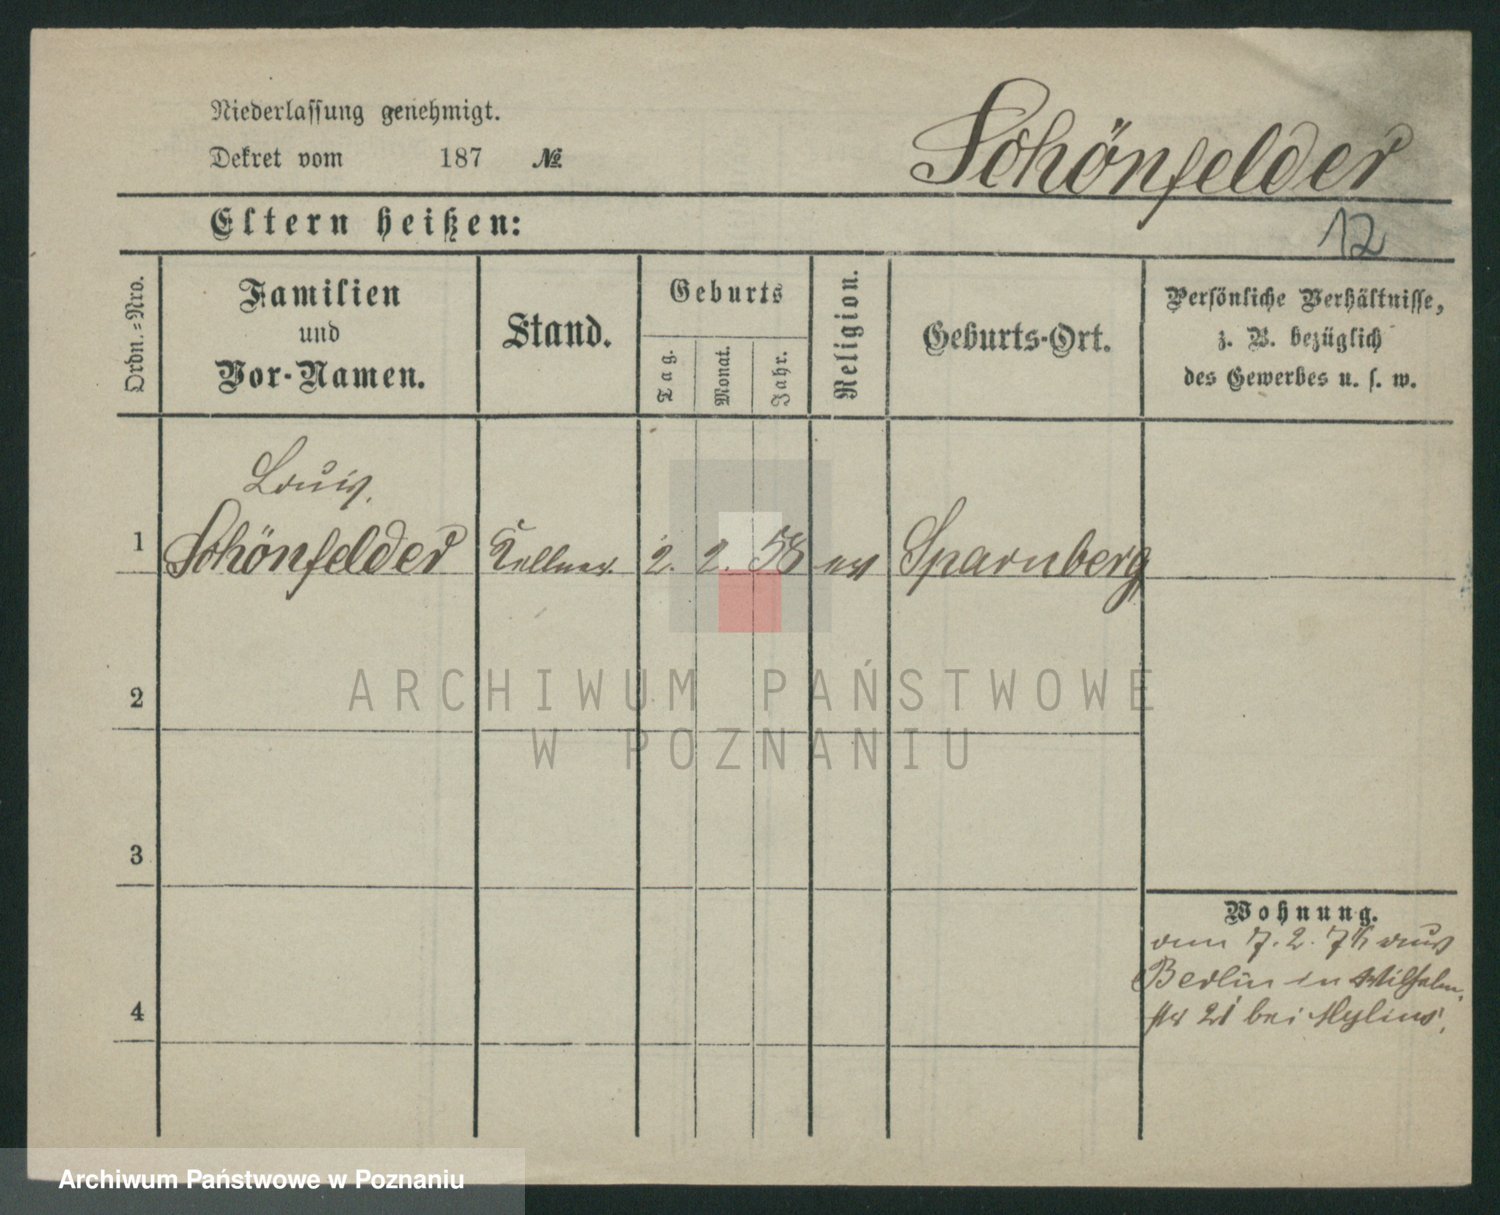 Niederlassung genehmigt.
Dekret vom 187 №
Schönfelder
12
Eltern heißen:
Ordn.-Nro.
Familien
und
Vor-Namen.
Stand.
Geburts
Tag.
Monat.
Jahr.
Religion.
Geburts-Ort.
Persönliche Verhältnisse,
z. B. bezüglich
des Gewerbes u. s. w.
Louis
1 Schönfelder Kellner. 2. 2. 58 ev Sparnberg
2
3
4
Wohnung.
7. 2. aus
Berlin in Wilhelm-
str 21 bei Mylius.
ARCHIWUM PAŃSTWOWE
W POZNANIU
Archiwum Państwowe w Poznaniu